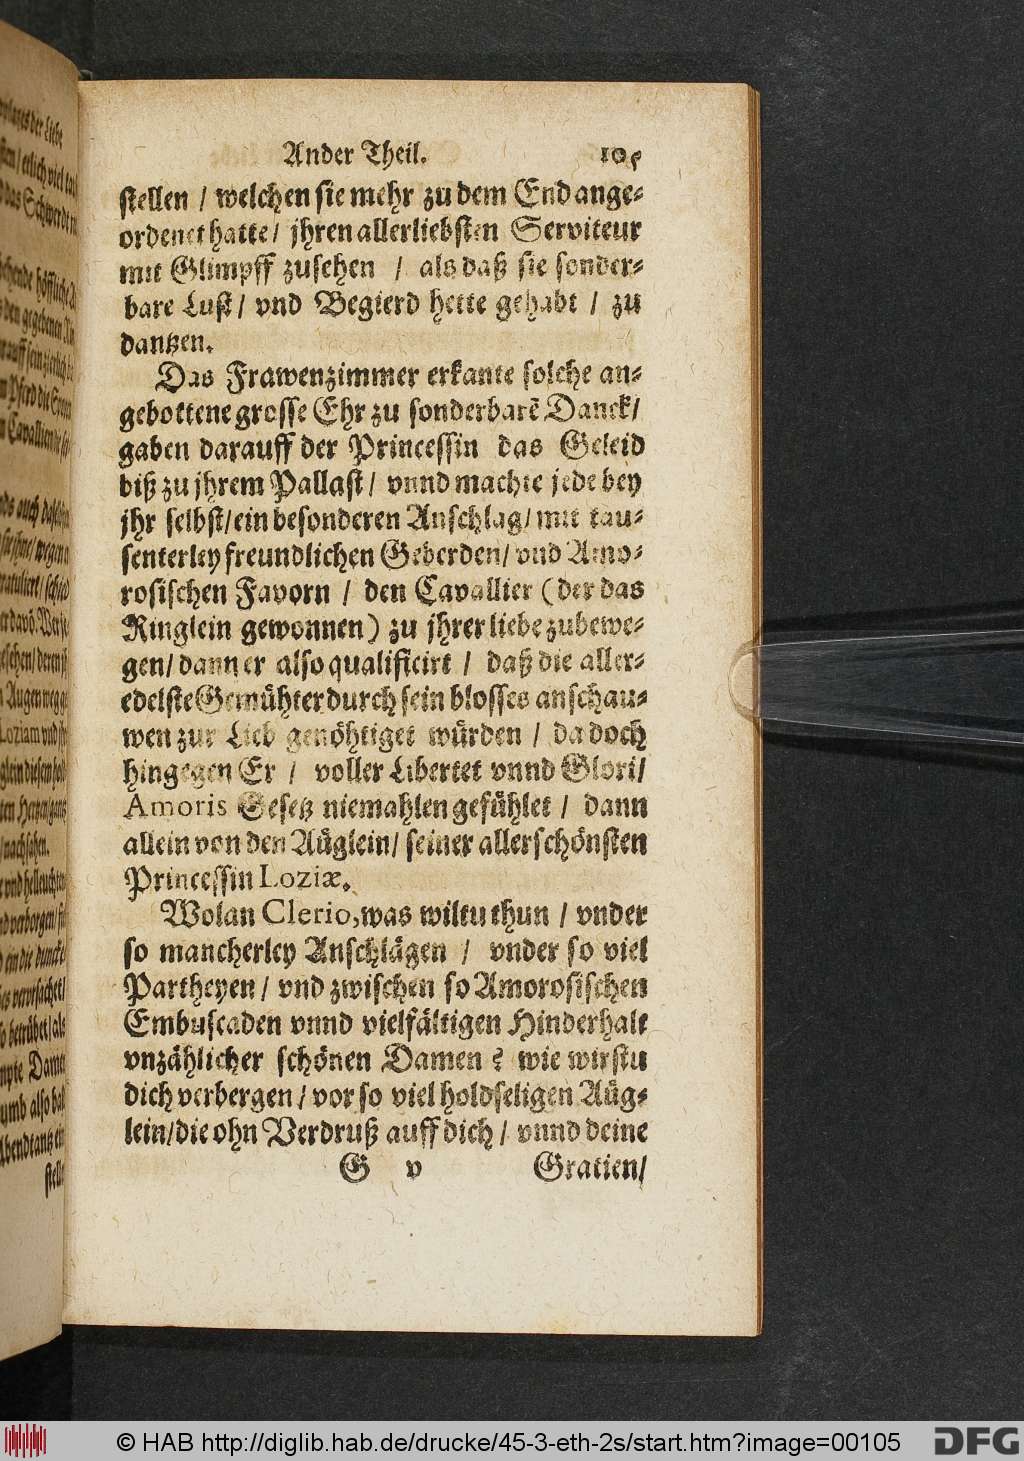 Ander Theil. 105
stellen / welchen sie mehr zu dem End ange-
ordenet hatte / jhren allerliebsten Serviteur
mit Glimpff zusehen / als daß sie sonder-
bare Lust / vnd Begierd hette gehabt / zu
dantzen.
Das Frawenzimmer erkante solche an-
gebottene grosse Ehr zu sonderbarẽ Danck /
gaben darauff der Princessin das Geleid
biß zu jhrem Pallast / vnnd machte jede bey
jhr selbst / ein besonderen Anschlag / mit tau-
senterley freundlichen Geberden / vnd Amo-
rosischen Favorn / den Cavallier (der das
Ringlein gewonnen) zu jhrer liebe zubewe-
gen / dann er also qualificirt / daß die aller-
edelste Gemühter durch sein blosses anschau-
wen zur Lieb genöhtiget würden / da doch
hingegen Er / voller Libertet vnnd Glori /
Amoris Gesetz niemahlen gefühlet / dann
allein von den Äuglein / seiner allerschönsten
Princessin Loziæ.
Wolan Clerio, was wiltu thun / vnder
so mancherley Anschlägen / vnder so viel
Partheyen / vnd zwischen so Amorosischen
Embuscaden vnnd vielfältigen Hinderhalt
vnzählicher schönen Damen? wie wirstu
dich verbergen / vor so viel holdseligen Äug-
lein / die ohn Verdruß auff dich / vnnd deine
G v Gratien /
© HAB http://diglib.hab.de/drucke/45-3-eth-2s/start.htm?image=00105
DFG